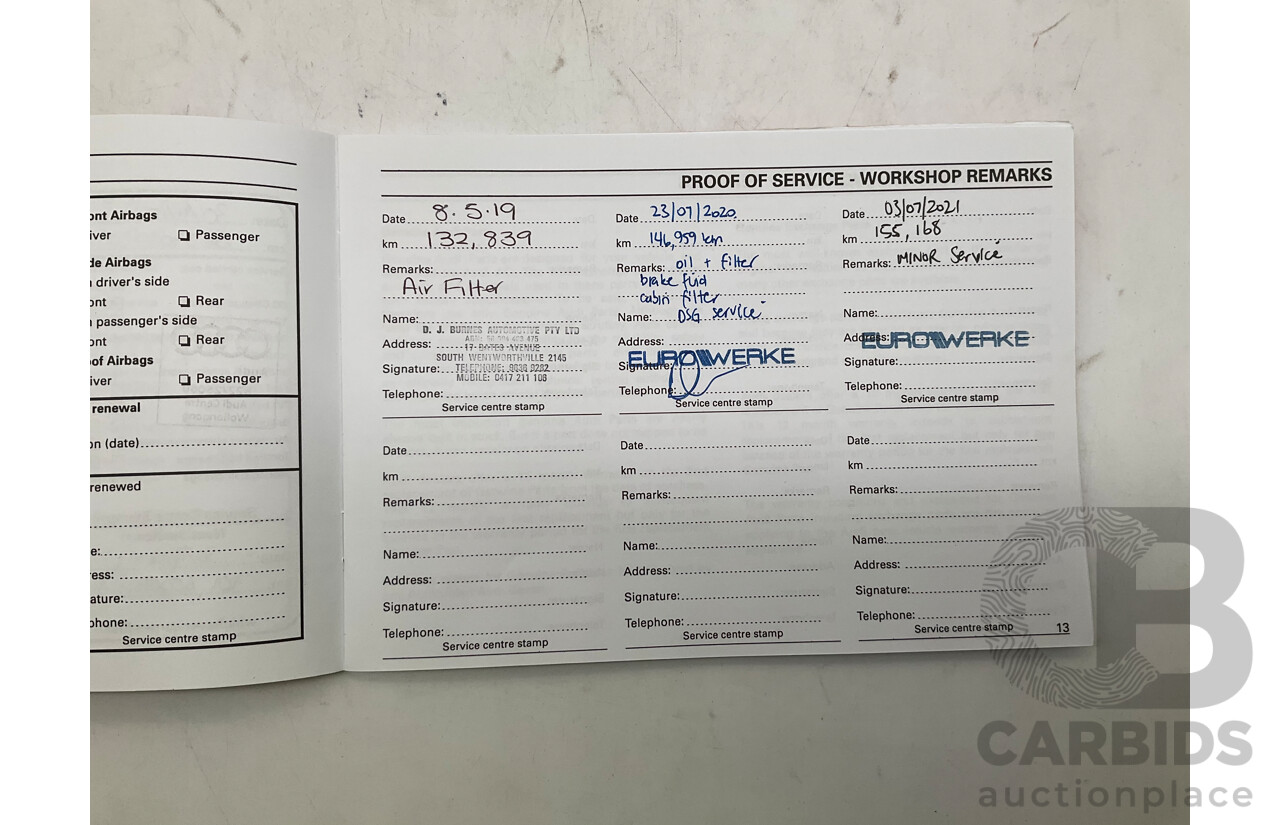 ont Airbags
iver ❏ Passenger
de Airbags
driver's side
ont ❏ Rear
passenger's side
ont ❏ Rear
of Airbags
iver ❏ Passenger
renewal
on (date)
renewed
e:
ress:
ature:
phone:
Service centre stamp
PROOF OF SERVICE - WORKSHOP REMARKS
Date 8.5.19
km 132,839
Remarks:
Air Filter
Name:
D. J. BURNES AUTOMOTIVE PTY LTD
Address: 17 BATES AVENUE
SOUTH WENTWORTHVILLE 2145
Signature: TELEPHONE:
MOBILE: 0417 211 108
Telephone:
Service centre stamp
Date 23/07/2020
km 146,959 km
Remarks: oil + filter
brake fluid
cabin filter
Name: DSG service
Address:
EUROWERKE
Signature:
Telephone:
Service centre stamp
Date 03/07/2021
km 155,168
Remarks: MINOR Service
Name:
Address: EUROWERKE
Signature:
Telephone:
Service centre stamp
Date
km
Remarks:
Name:
Address:
Signature:
Telephone:
Service centre stamp
Date
km
Remarks:
Name:
Address:
Signature:
Telephone:
Service centre stamp
Date
km
Remarks:
Name:
Address:
Signature:
Telephone:
Service centre stamp
13
CB
CARBIDS
auctionplace